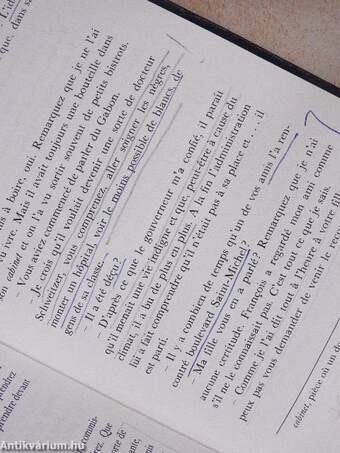 L'id
que, dans sa
s à boire, oui. Remarquez que je ne l'ai
vu ivre. Mais il avait toujours une bouteille dans
son cabinet et on l'a vu sortir souvent de petits bistrots.
– Vous aviez commencé de parler du Gabon.
– Je crois qu'il voulait devenir une sorte de docteur
Schweitzer, vous comprenez, aller soigner les nègres,
monter un hôpital, voir le moins possible de blancs, de
gens de sa classe.
– Il a été déçu?
– D'après ce que le gouverneur m'a confié, il paraît
qu'il menait une vie et que, peut-être à cause du
climat, il a bu de plus en plus. A la fin l'administration
lui a fait comprendre qu'il n'était pas à sa place et.... il
est parti.
– Il y a combien de temps qu'un de vos amis l'a ren-
contré boulevard Saint-Michel?
– Ma fille vous en a parlé? Remarquez que je n'ai
aucune certitude. François a regardé mon ami comme
s'il ne le connaissait pas. C'est tout ce que je sais.
– Comme je l'ai dit tout à l'heure à votre fill
peux pas vous demander de venir le reco
cabinet, pièce où un d
prendre devant
commis-
rez. Que
orte de
Antikvárium.hu